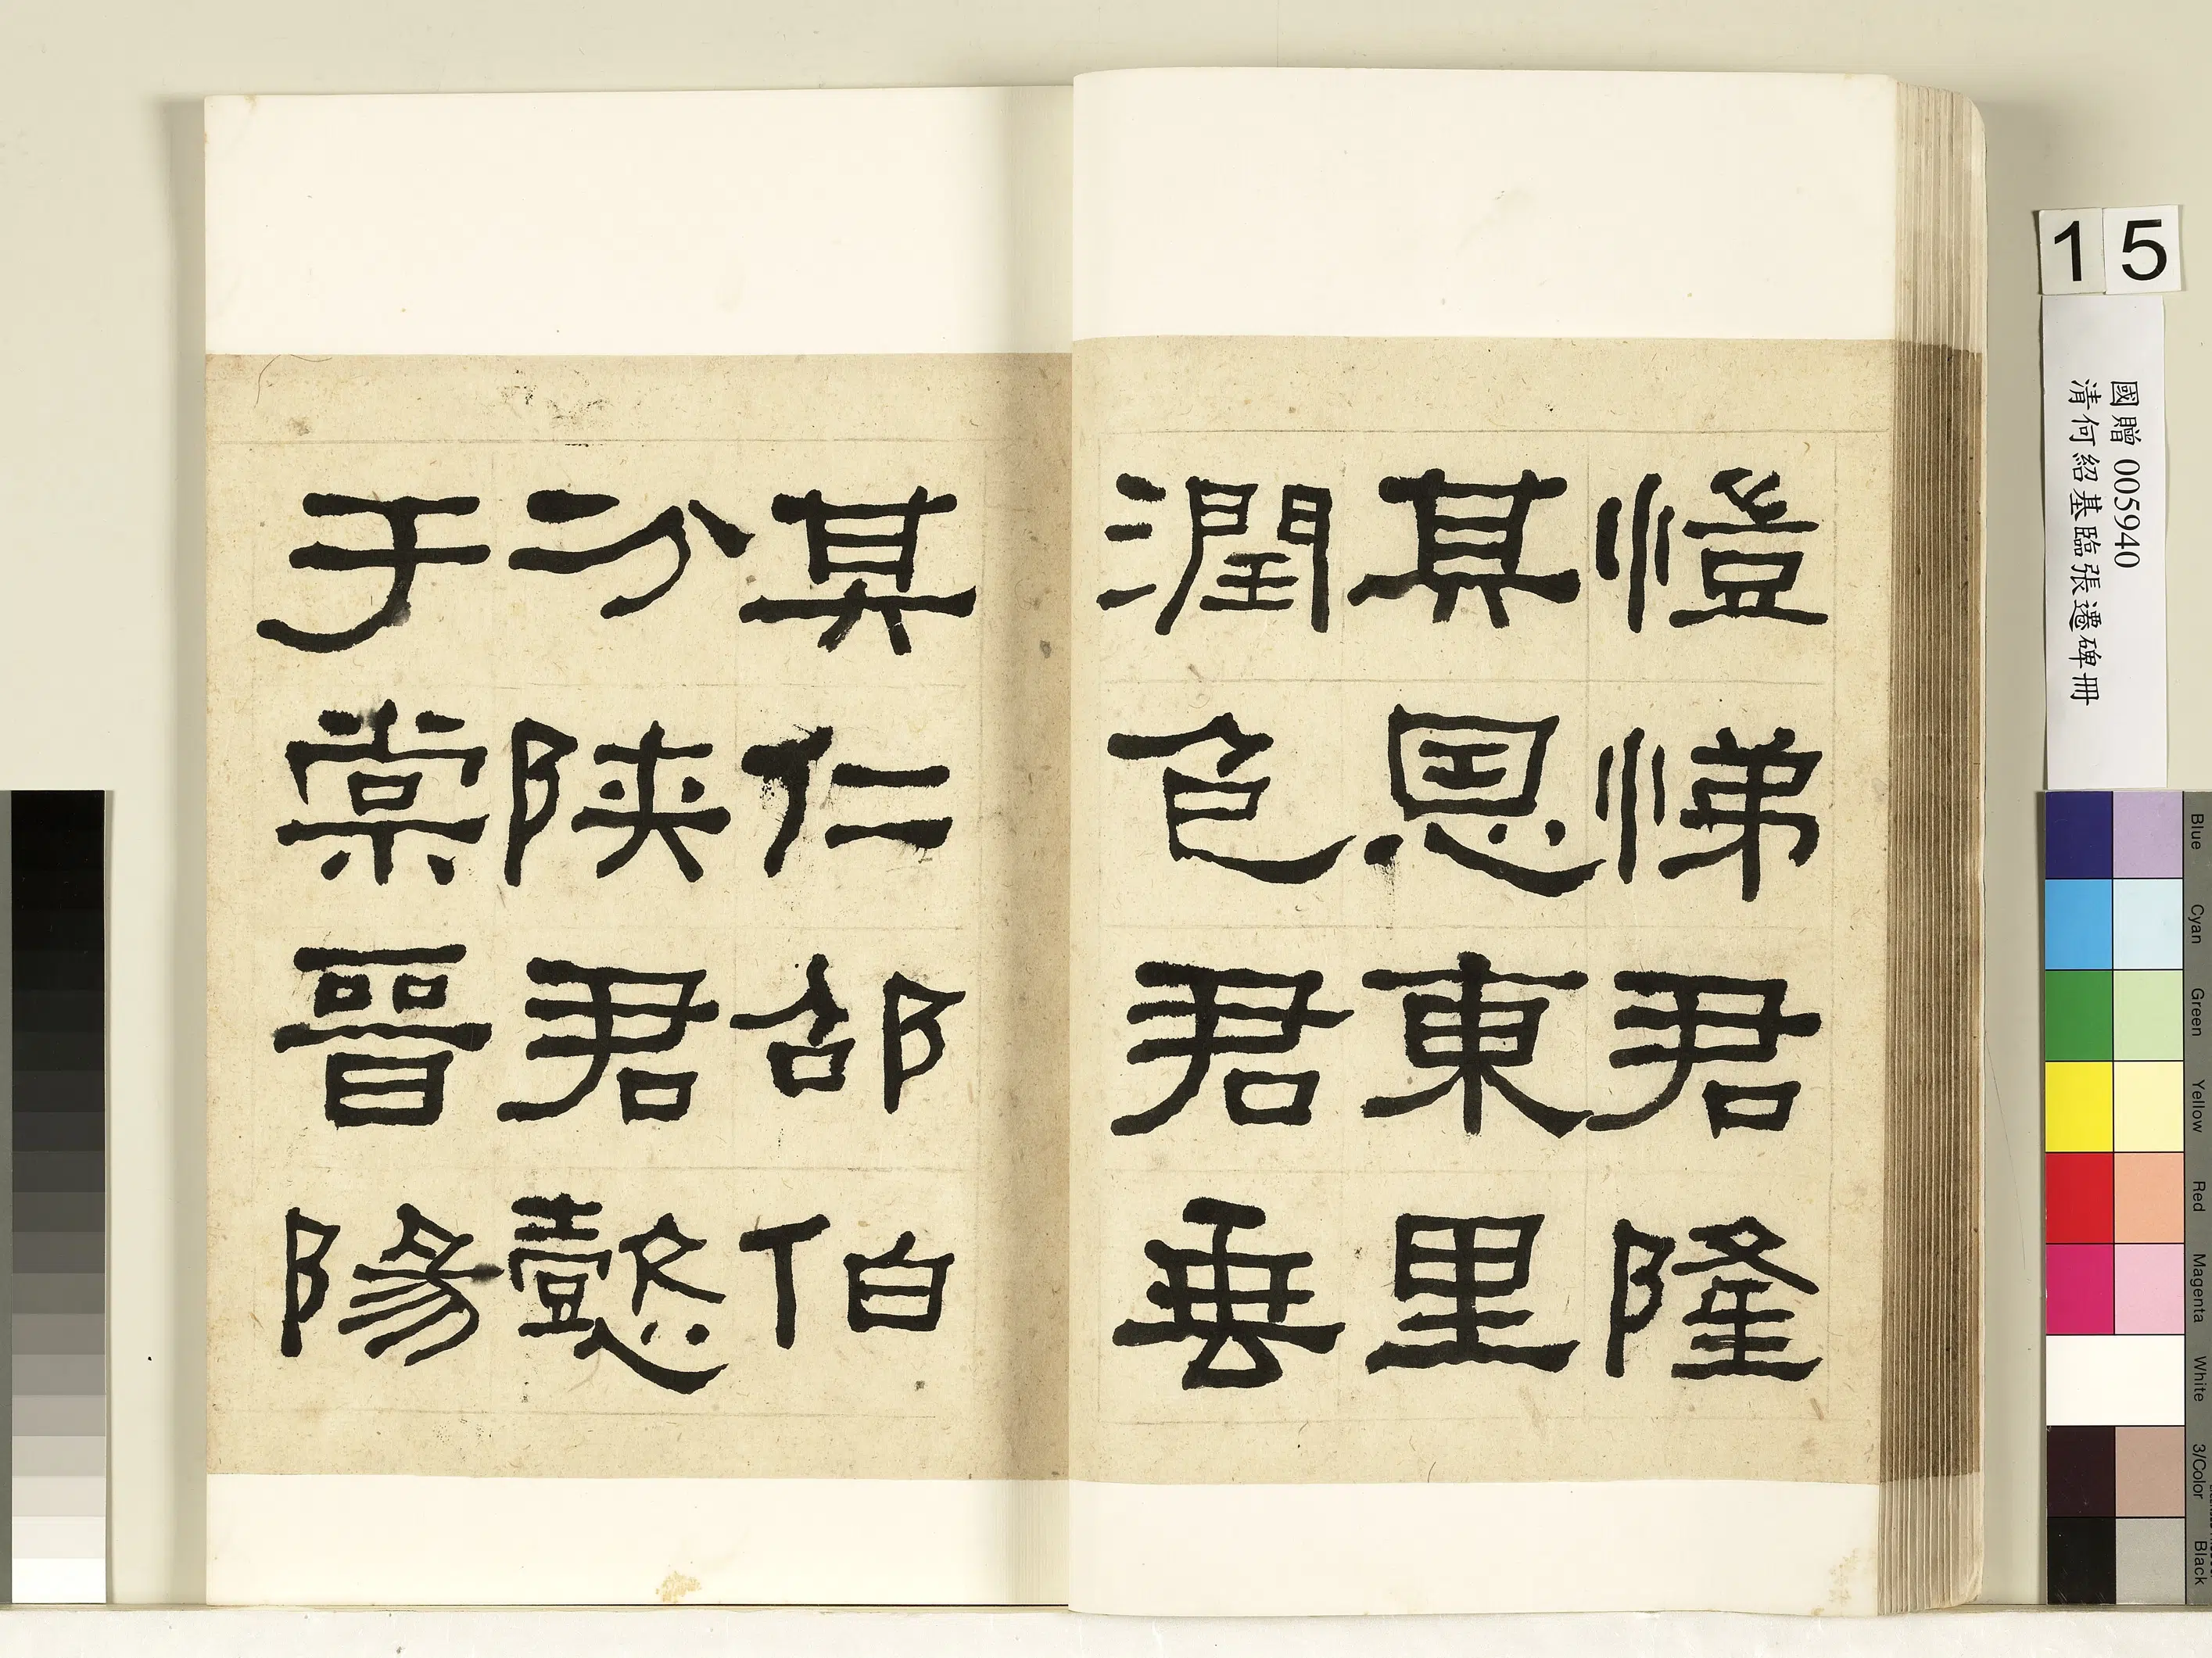 愷悌君隆
其恩東里
潤色君垂
其仁邵伯
分陝君懿
于棠晉陽
15
國贈 005940
清何紹基臨張遷碑冊
Blue
Cyan
Green
Yellow
Red
Magenta
White
3/Color
Black